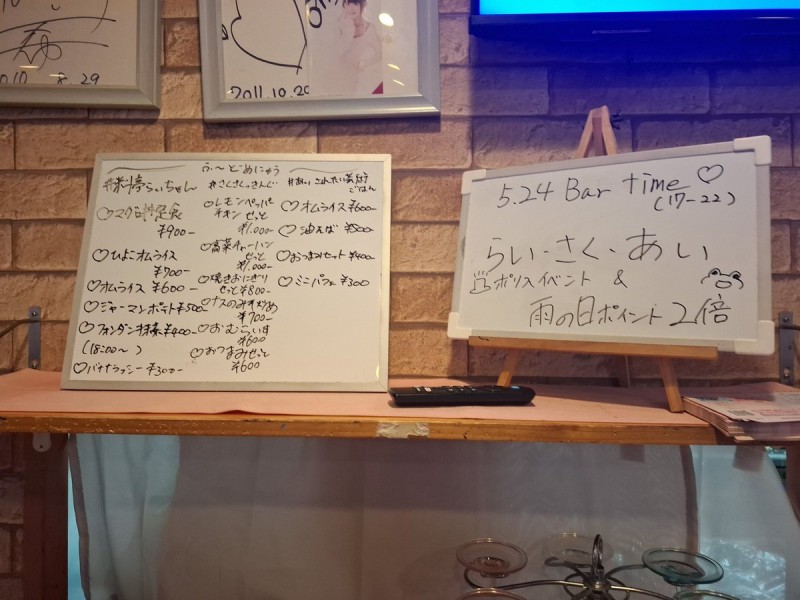 2010 8.29
2011.10.20
ふ〜どめにゅう
らいちゃん
#さくさくっきんぐ
ごはん
♡マグロ漬定食
¥900-
♡ひよこオムライス
¥700-
♡オムライス ¥600-
♡ジャーマンポテト¥500-
♡フォンダン抹茶¥400-
(18:00〜)
♡バナナラッシー¥300-
♡レモンペッパー
チキンせっと
¥1,000-
♡高菜チャーハン
せっと
¥1,000-
♡焼きおにぎり
せっと¥800-
♡ナスのみそ炒め
¥700-
♡おむらいす
¥600
♡おつまみせっと
¥600
♡オムライス¥600-
♡油そば ¥500-
♡おつまみセット¥400-
♡ミニパフェ¥300
5.24 Bar time♡
(17-22)
らい・さく・あい
ポリスイベント &
雨の日ポイント2倍